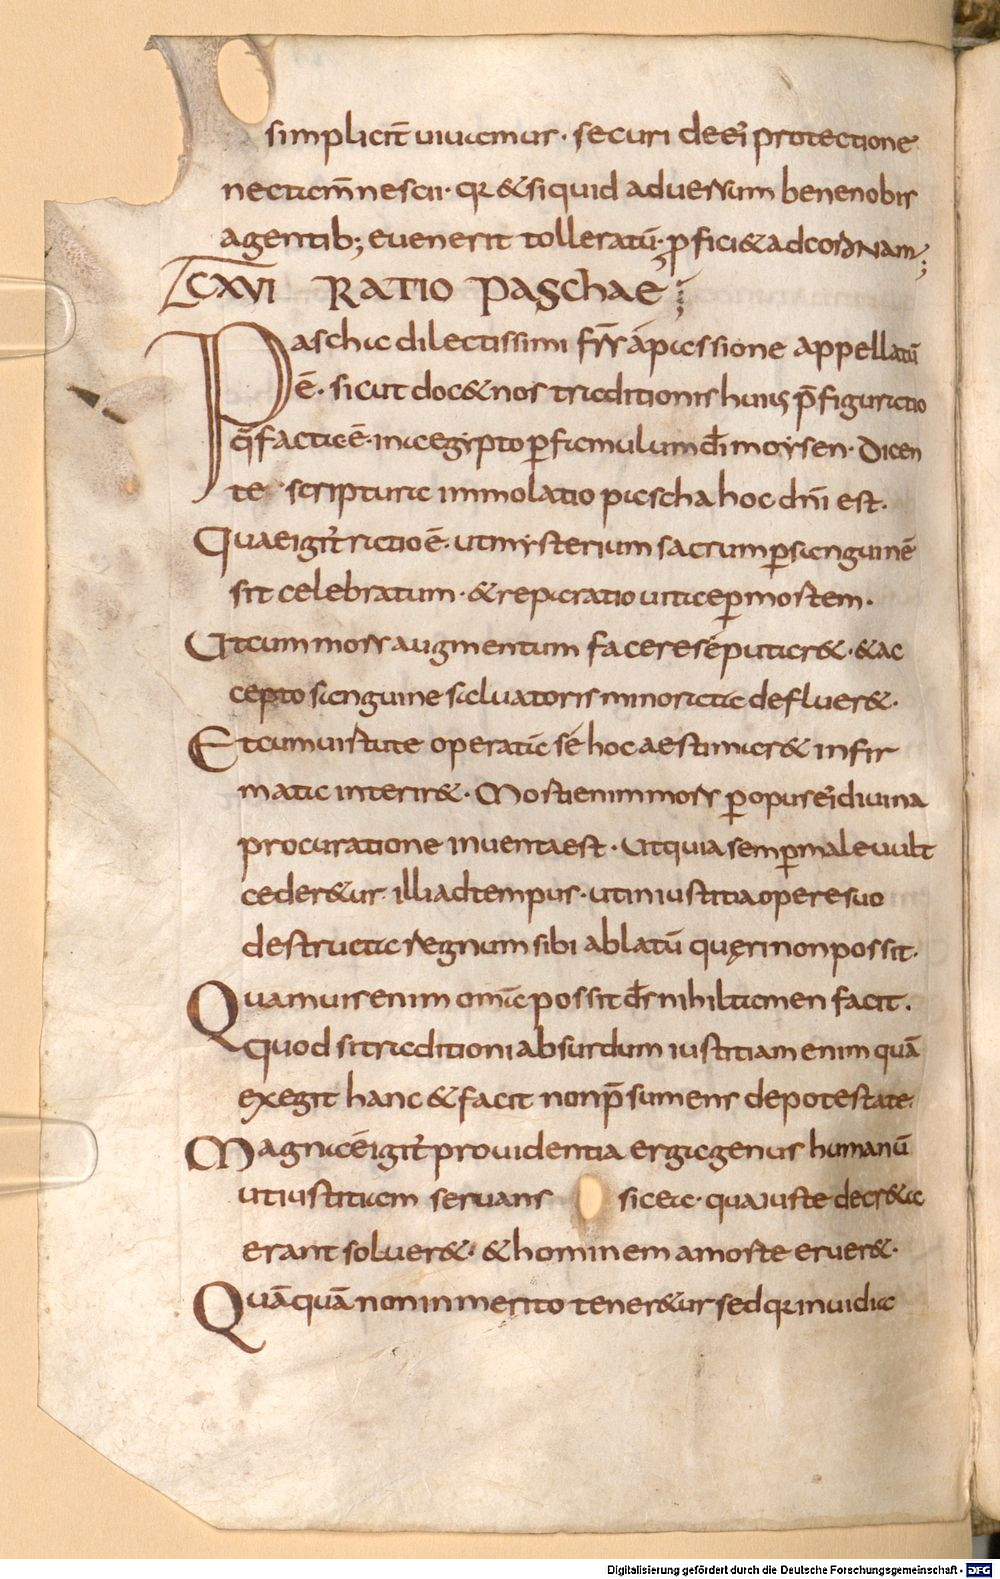 simplicit̄ uiuamur · securi de ei᾽ protectione
nec tam̄ nescii · qꝛ & siquid aduersum bene nobis
agentib; euenerit tolleratū · ꝓfici& ad coronam;
CXVI RATIO PASCHAE;
Paschа dilectissimi fr̄r̄ a passione appellatū
ē · sicut doc& nos traditionis hui᾽ p̄figuratio
q̄ facta ē · in aegypto ꝑ famulum dī moysen · Dicen
te scriptura immolatio pascha hoc dn̄i est.
Quae igit᾽ ratio ē · ut mysterium sacrum ꝑ sanguinē
sit celebratum · & reparatio uitae ꝑ mortem ·
Ut cum mors augmentum facere se putar& · & ac
cepto sanguine saluatoris minorata defluer& ·
Et cum uirtute operata se hoc aestimar& infir
mata interir& · Morti enim mors ꝑ opus ei᾽ diuina
procuratione inuenta est · Ut quia semꝑ male uult
ceder&ur illi ad tempus · ut iniustitia opere suo
destructa regnum sibi ablatū quęri non possit ·
Quamuis enim om̄ia possit d̄s nihil tamen facit ·
Quod sit raeditioni absurdum iustitiam enim quā
exegit hanc & facit non p̄sumens de potestate ·
Magna ē igit᾽ prouidentia erga genus humanū
ut iustitiam seruans sic ea · qua iuste decr&a
erant soluer& · & hominem a morte eruer& ·
Quāquā non inmerito tener&ur sed qꝛ inuidia
Digitalisierung gefördert durch die Deutsche Forschungsgemeinschaft - DFG